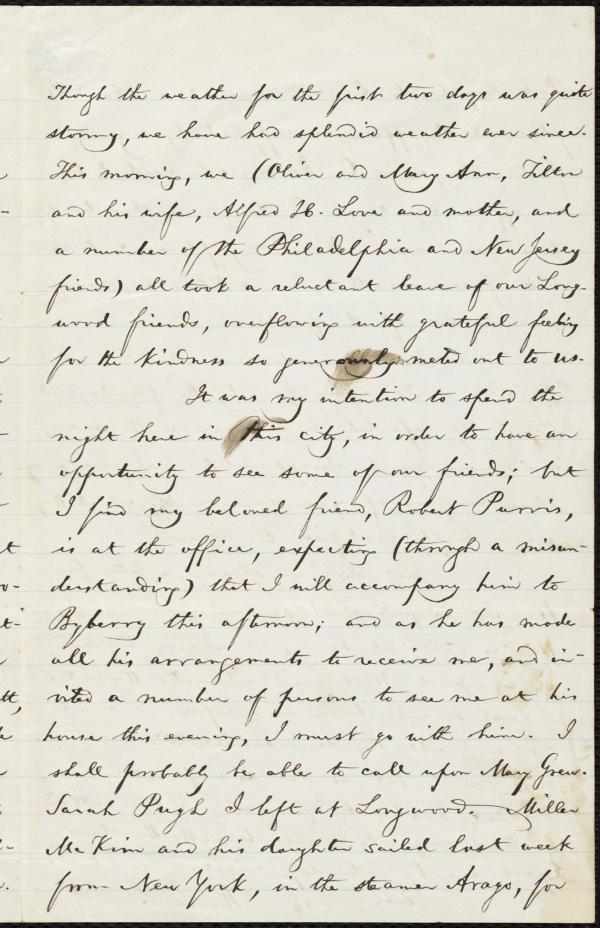 Though the weather for the first two days was quite
stormy, we have had splendid weather ever since.
This morning, we (Oliver and Mary Ann, Tilton
and his wife, Alfred H. Love and mother, and
a number of the Philadelphia and New Jersey
friends) all took a reluctant leave of our Long-
wood friends, overflowing with grateful feeling
for the kindness so generously meted out to us.
It was my intention to spend the
night here in this city, in order to have an
opportunity to see some of our friends; but
I find my beloved friend, Robert Purvis,
is at the office, expecting (through a misun-
derstanding) that I will accompany him to
Byberry this afternoon; and as he has made
all his arrangements to receive me, and in-
vited a number of persons to see me at his
house this evening, I must go with him. I
shall probably be able to call upon Mary Grew.
Sarah Pugh I left at Longwood. Miller
McKim and his daughter sailed last week
from New York, in the steamer Arago, for